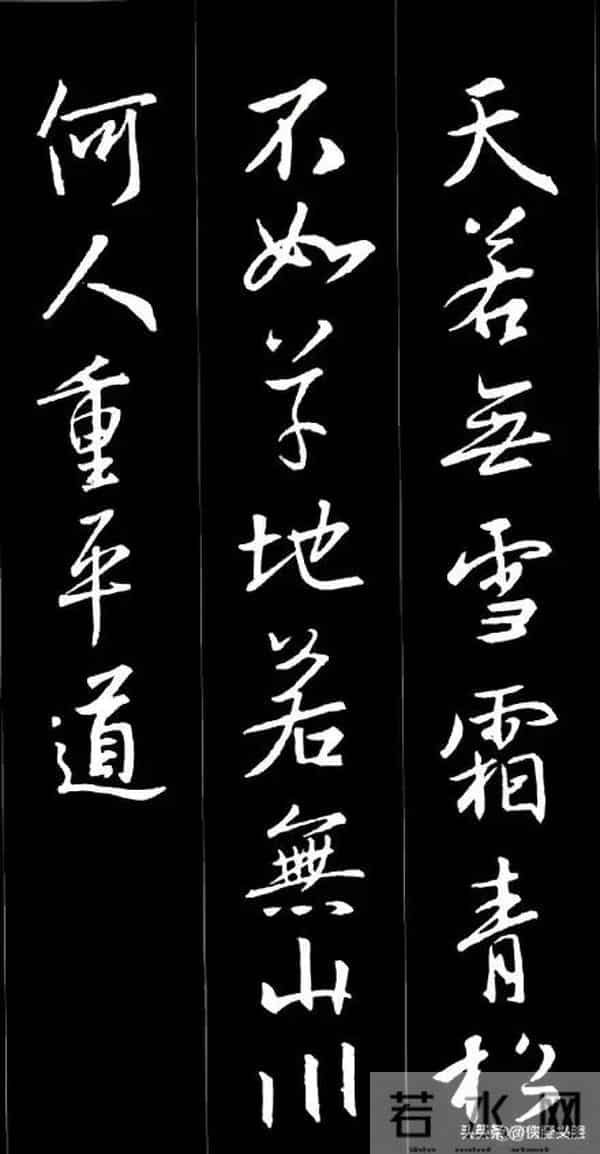 天若無雪霜青松
不如草地若無山川
何人重平道
若水网
头条